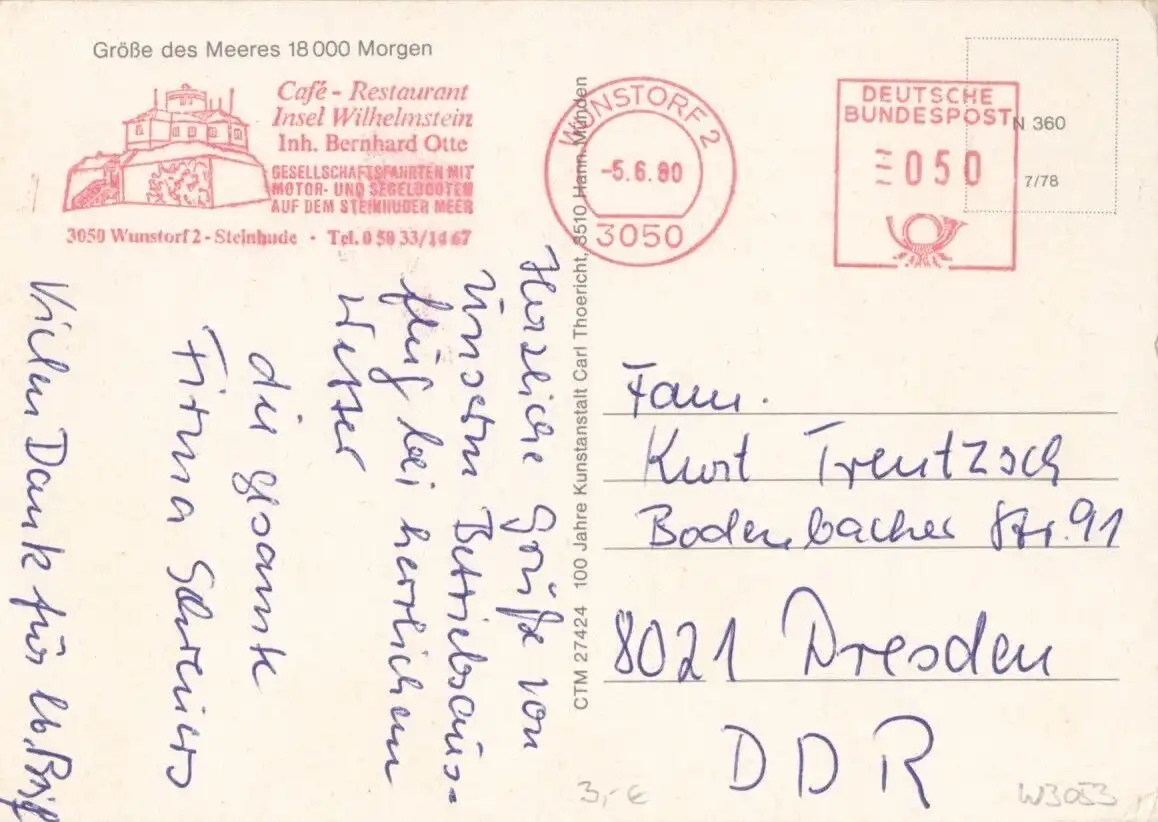 Größe des Meeres 18 000 Morgen
Café - Restaurant
Insel Wilhelmstein
Inh. Bernhard Otte
GESELLSCHAFTSFAHRTEN MIT
MOTOR- UND SEGELBOOTEN
AUF DEM STEINHUDER MEER
3050 Wunstorf 2 - Steinhude · Tel. 0 50 33/14 67
WUNSTORF 2
-5.6.80
3050
DEUTSCHE
BUNDESPOST
050
N 360
7/78
CTM 27424 100 Jahre Kunstanstalt Carl Thoericht, 3510 Hann. Münden
Herzliche Grüße von
Unserm Betriebsaus-
flug bei herrlichem
Wetter
die gesamte
Firma
Vielen Dank für lb. Brief
Fam.
Kurt Trentzsch
Bodenbacher Str. 91
8021 Dresden
DDR
3,- €
W3053